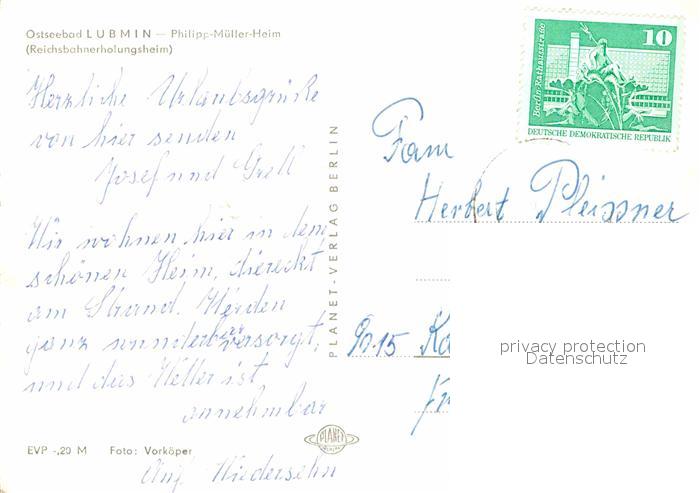 Ostseebad LUBMIN — Philipp-Müller-Heim
(Reichsbahnerholungsheim)
Herzliche Urlaubsgrüße
von hier senden
Josef und Gretl
Wir wohnen hier in dem
schönen Heim, diereckt
am Strand. Werden
ganz wunderbar versorgt,
und das Wetter ist
annehmbar
Auf Wiedersehn
EVP -,20 M Foto: Vorköper
PLANET-VERLAG BERLIN
PLANET
10
Berlin, Rathausstraße
DEUTSCHE DEMOKRATISCHE REPUBLIK
Fam
Herbert Pleissner
9015 Ka
privacy protection
Datenschutz